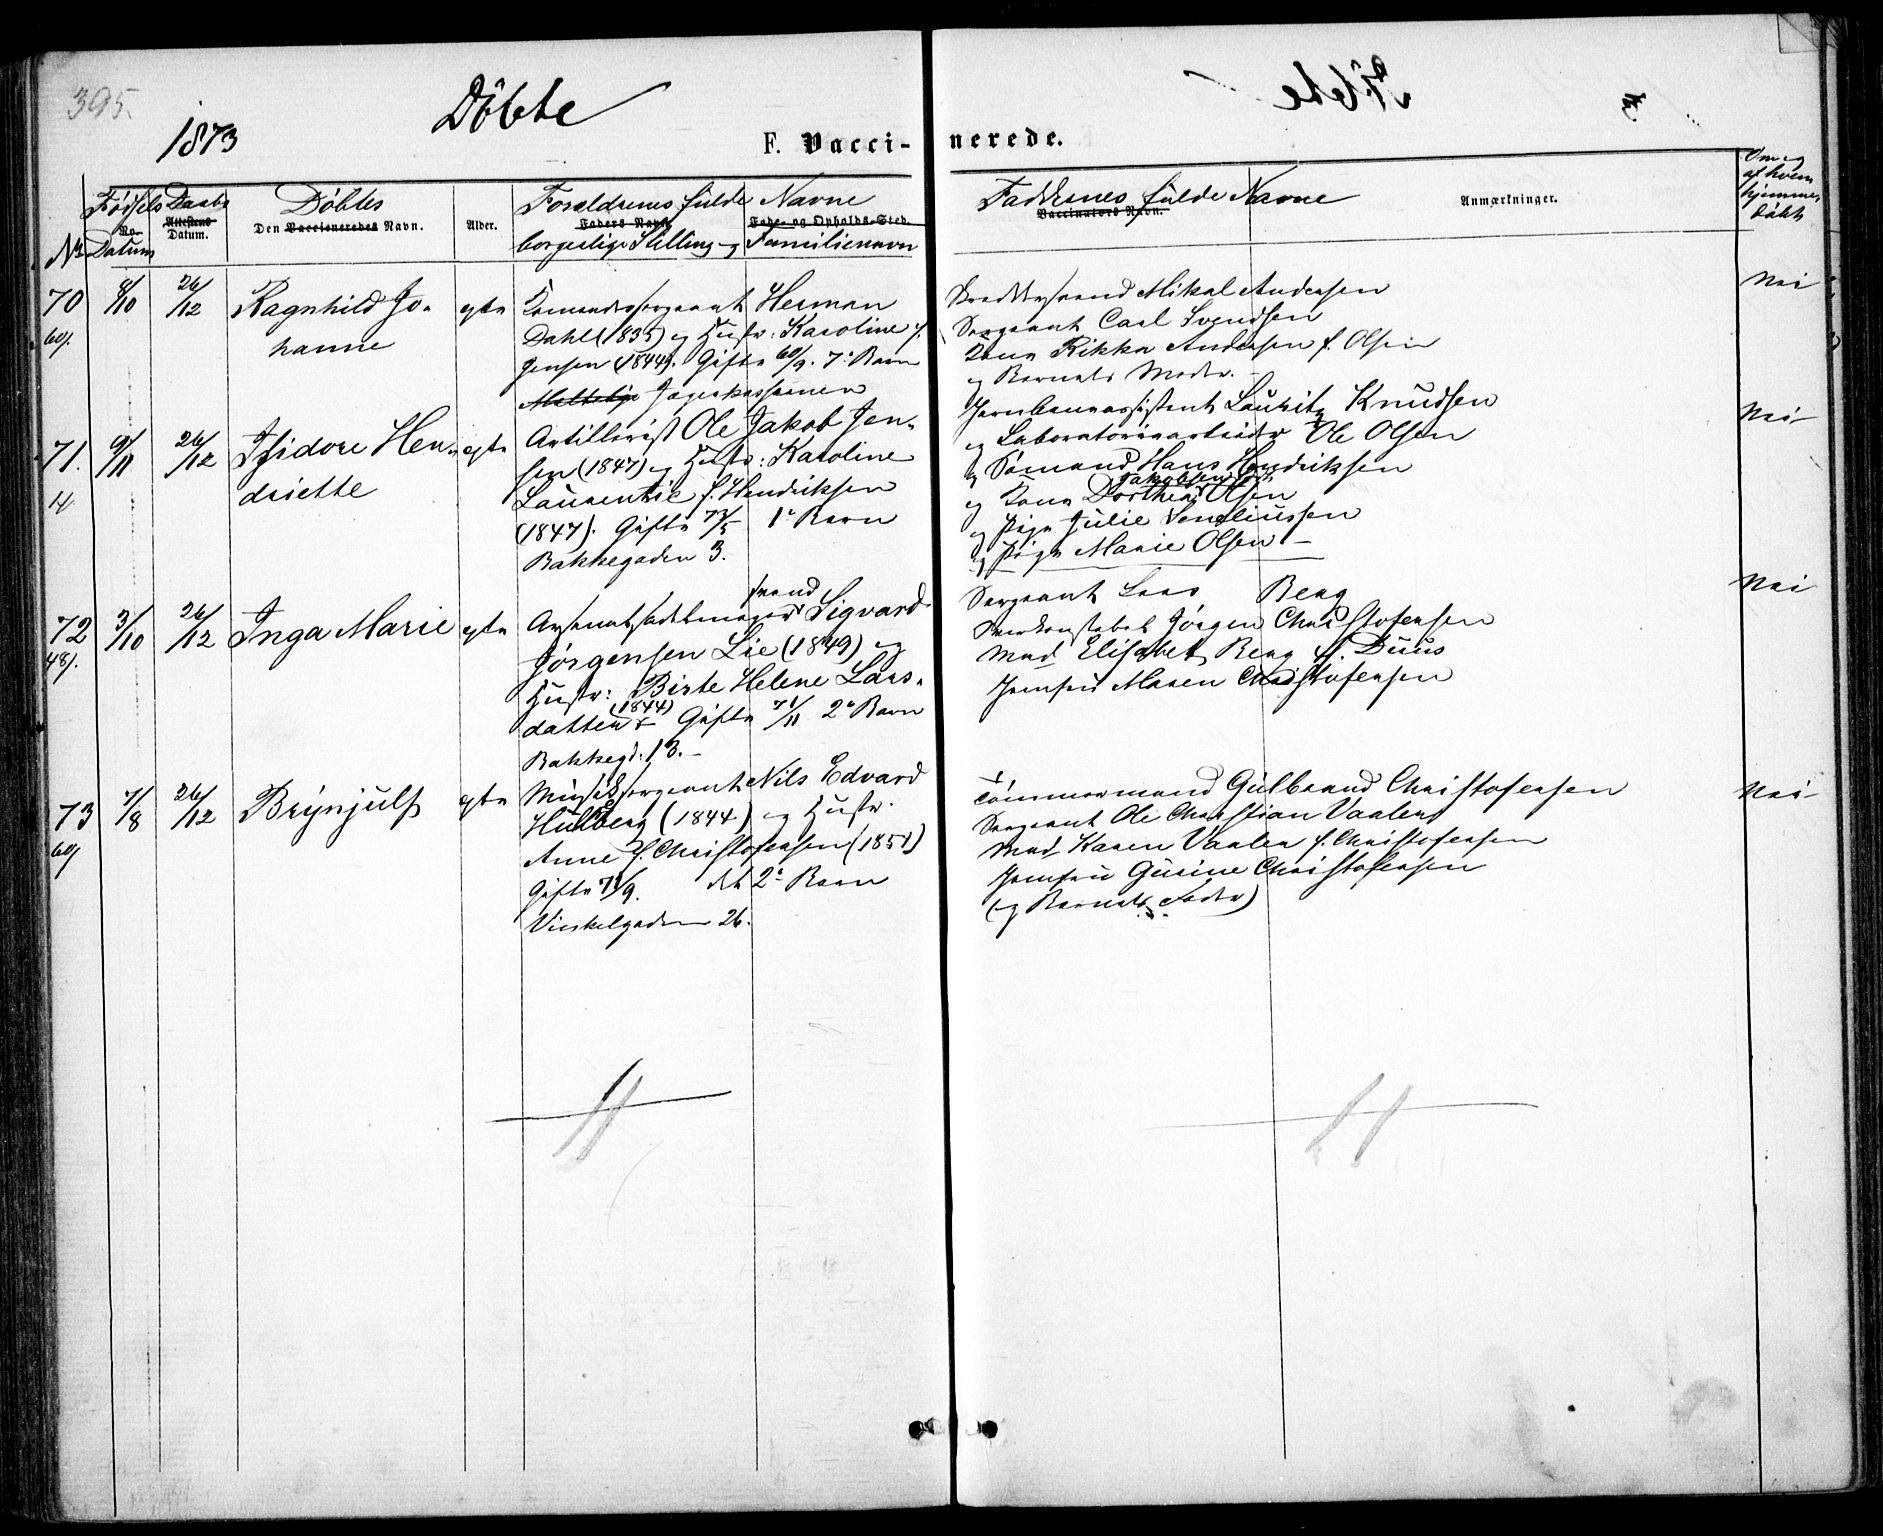 395.
Döbte
1873
F. Vacci-nerede.
Nr.
Fødsels No. Datum
Daabs Attestens Datum.
Döbtes
Den Vaccineredes Navn.
Alder.
Forældrenes fulde Navne
Faders Navn Føde- og Opholds-Sted.
borgerlige Stilling og Familienavn
Faddernes fulde Navne
Vaccinators Navn.
Anmærkninger.
Om og af hvem hjemme døbt
70
60/.
8/10
26/12
Ragnhild Jo-
hanne
ægte
Komandersergeant Herman
Dahl (1835) og Hustr: Karoline f.
Jensen (1844). Gifte 60/9. 7de Barn
Mikal Andersen
Sergeant Carl Svendsen
Kone Rikke Andersen f. Olsen
og Barnets Moder.
Nei
71.
14.
9/11
26/12
Isidore Hen-
driette
ægte
Artillerist Ole Jakob Jen-
sen (1847) og Hustr: Karoline
Laurentie f. Hendriksen
(1847). Gifte 73/5 1te Barn
Bakkegaden 3.
Jernbaneassistent Lauritz Knudsen
og Laboratoriearbeider Ole Olsen
og Sømand Hans Hendriksen
og Kone Dorthea Jakobsen f. Olsen
og Pige Julie Corneliussen
og Pige Marie Olsen
Nei
72
48/.
3/10
26/12
Inga Marie
ægte
Arsenalsadelmagersvend Sigvard
Jørgensen Lie (1849) og
Hustr: Birte Helene Lars-
datter (1844) Gifte 71/11 2det Barn
Bakkegd: 13.
Sergeant Lars Berg
Jørgen Christofersen
Mad. Elisabet Berg f. Duus
Jomfru Maren Christofersen
Nei
73
60/
7/8
26/12
Brynjulf
ægte
Musiksergeant Nils Edvard
Hulberg (1844) og Hustr.
Anne f. Christofersen (1851)
Gifte 71/9. det 2det Barn
Vinkelgaden 26.
Tømmermand Gulbrand Christofersen
Sergeant Ole Christian Vaaler
Mad. Karen Vaaler f. Christofersen
Jomfru Gusine Christofersen
(og Barnets Fader)
Nei